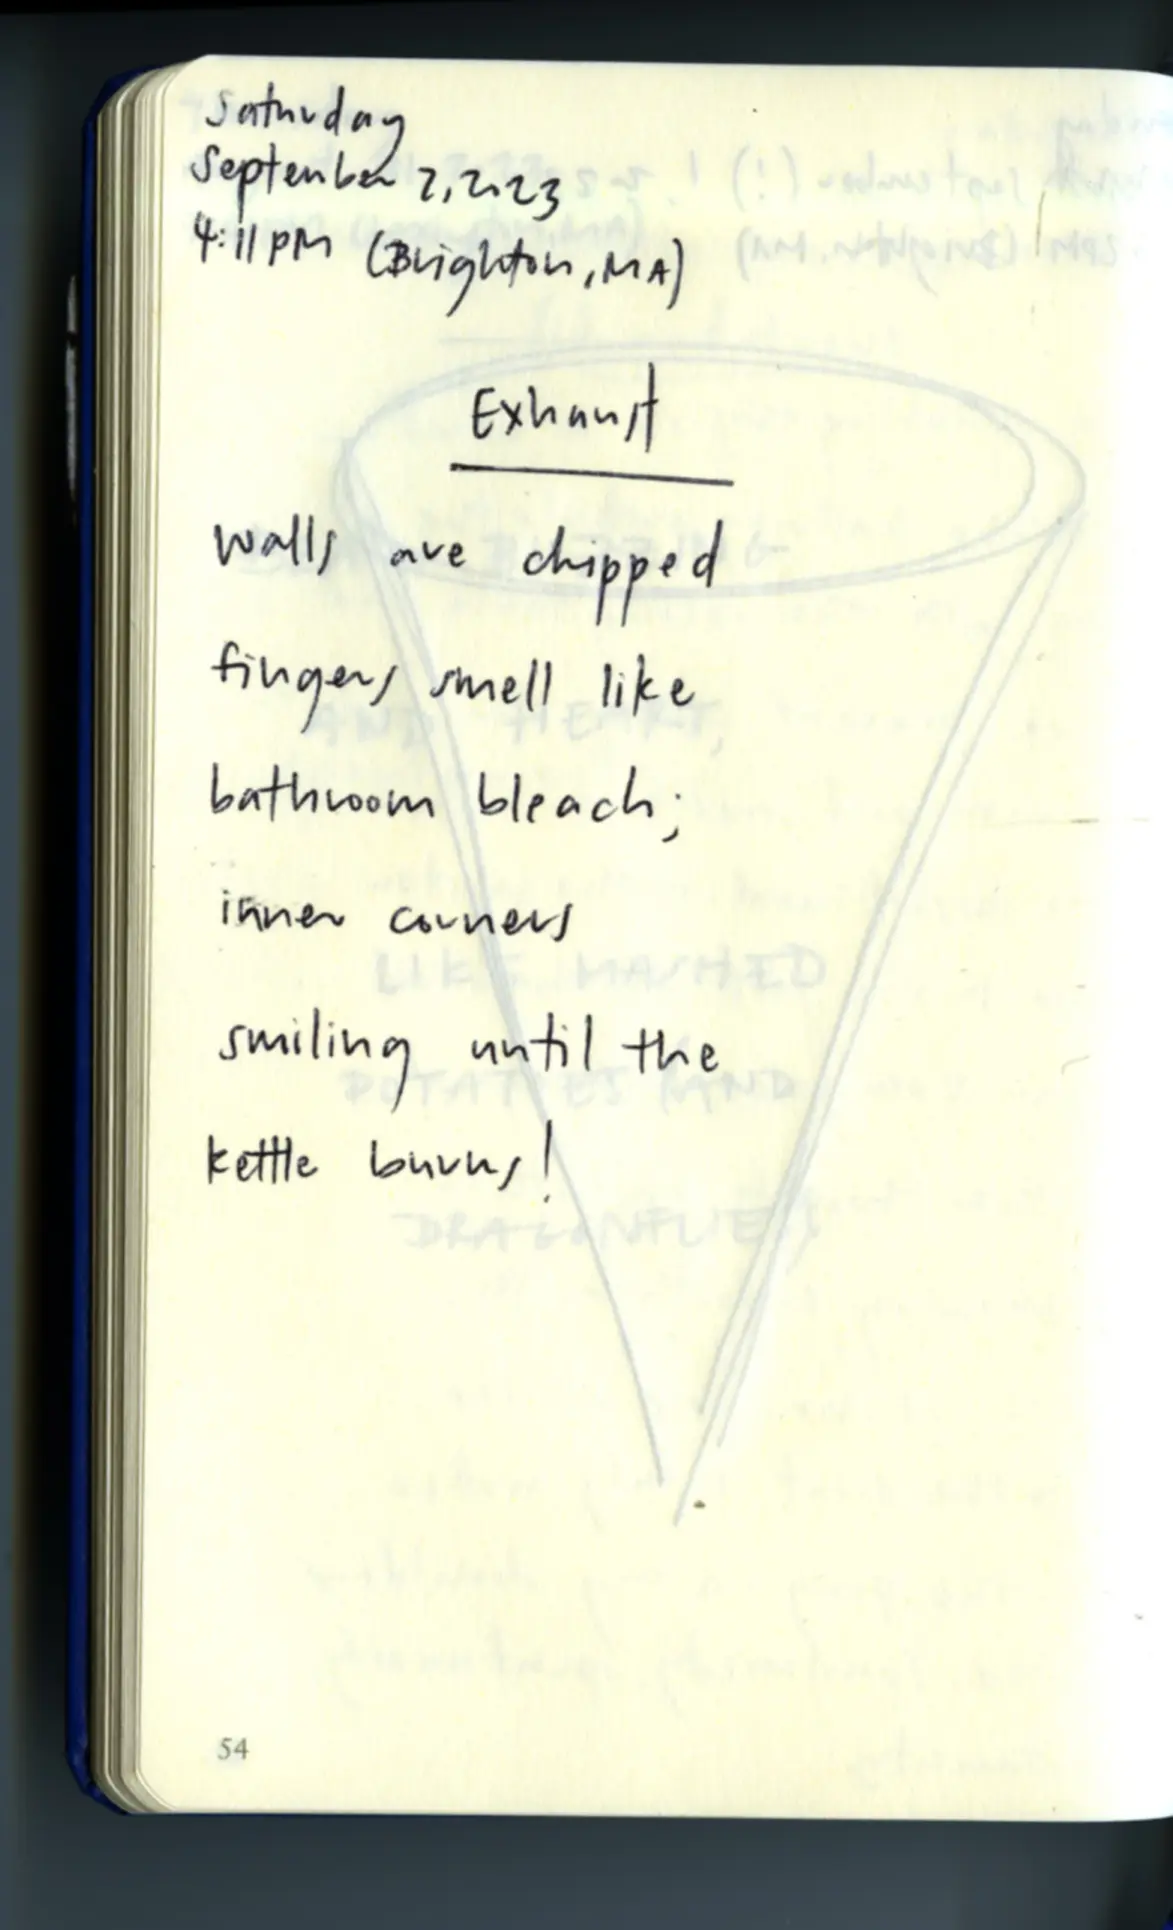 Saturday
September 2, 2023
4:11 PM (Brighton, MA)
Exhaust
walls are chipped
fingers smell like
bathroom bleach;
inner corners
smiling until the
kettle burns!
54